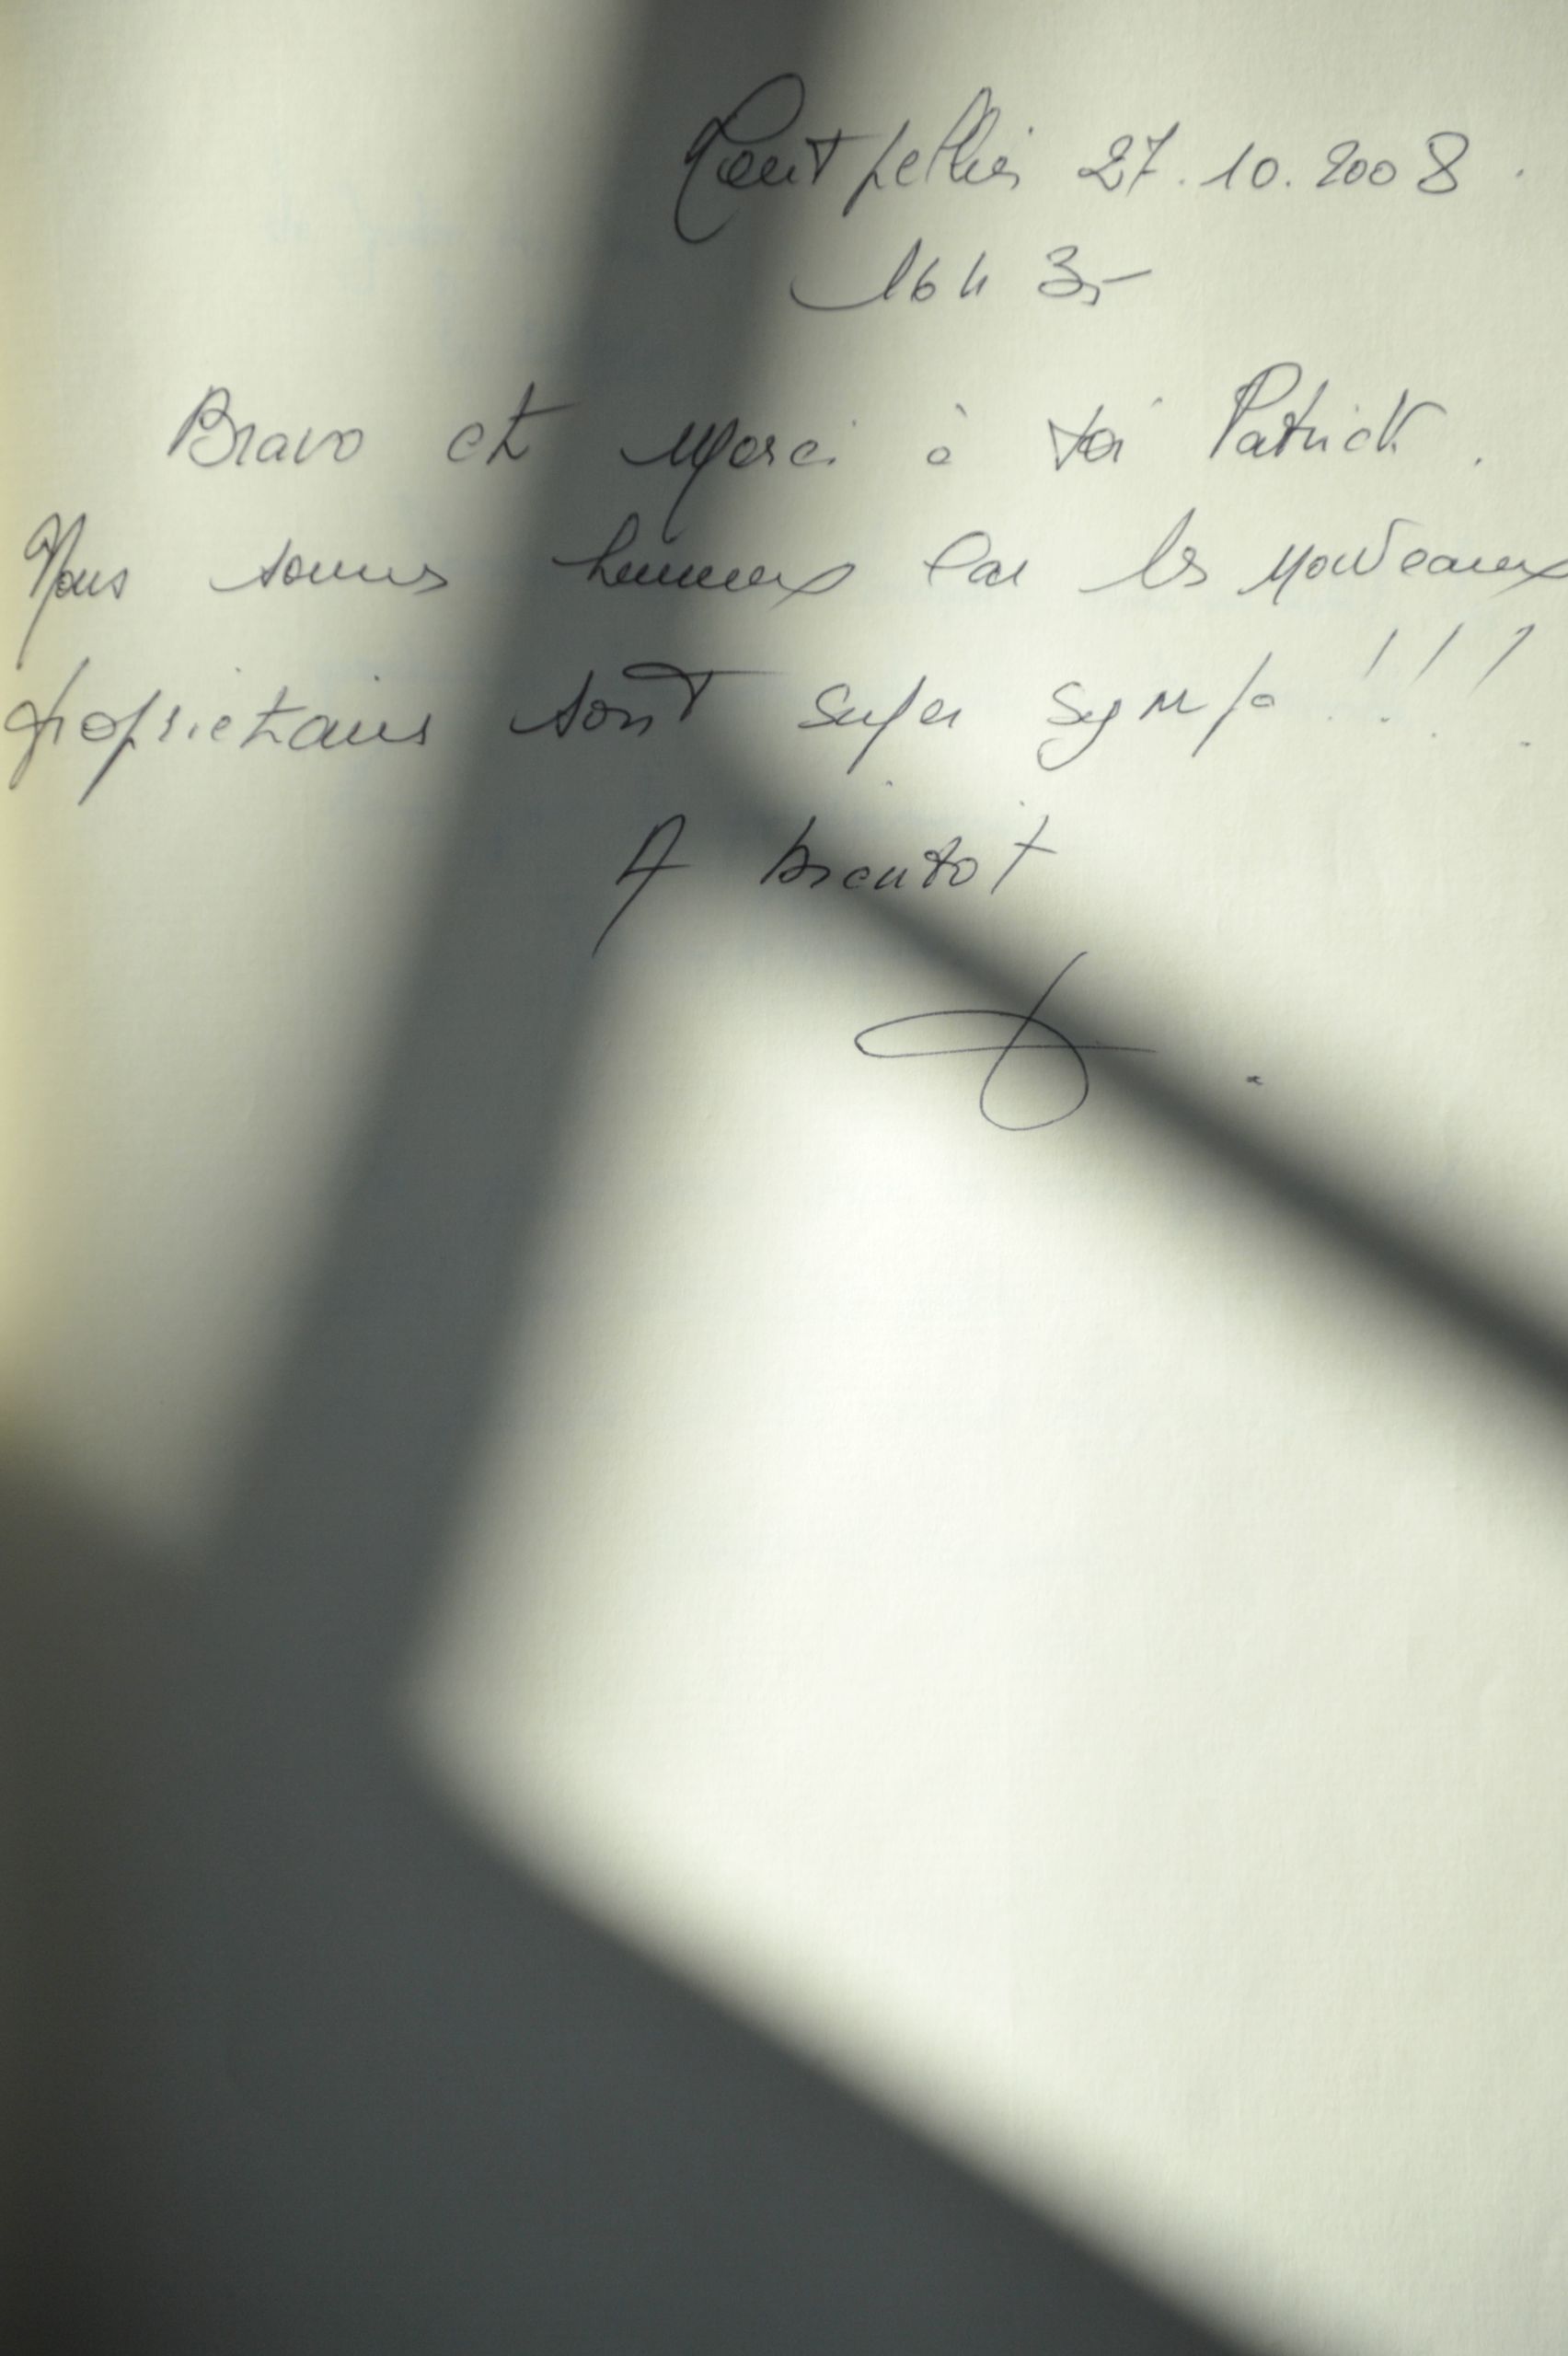 Montpellier 27.10.2008.
16h 35
Bravo et Merci à toi Patrick.
Nous sommes heureux car les nouveaux
proprietaires sont super sympa !!!
A bientot